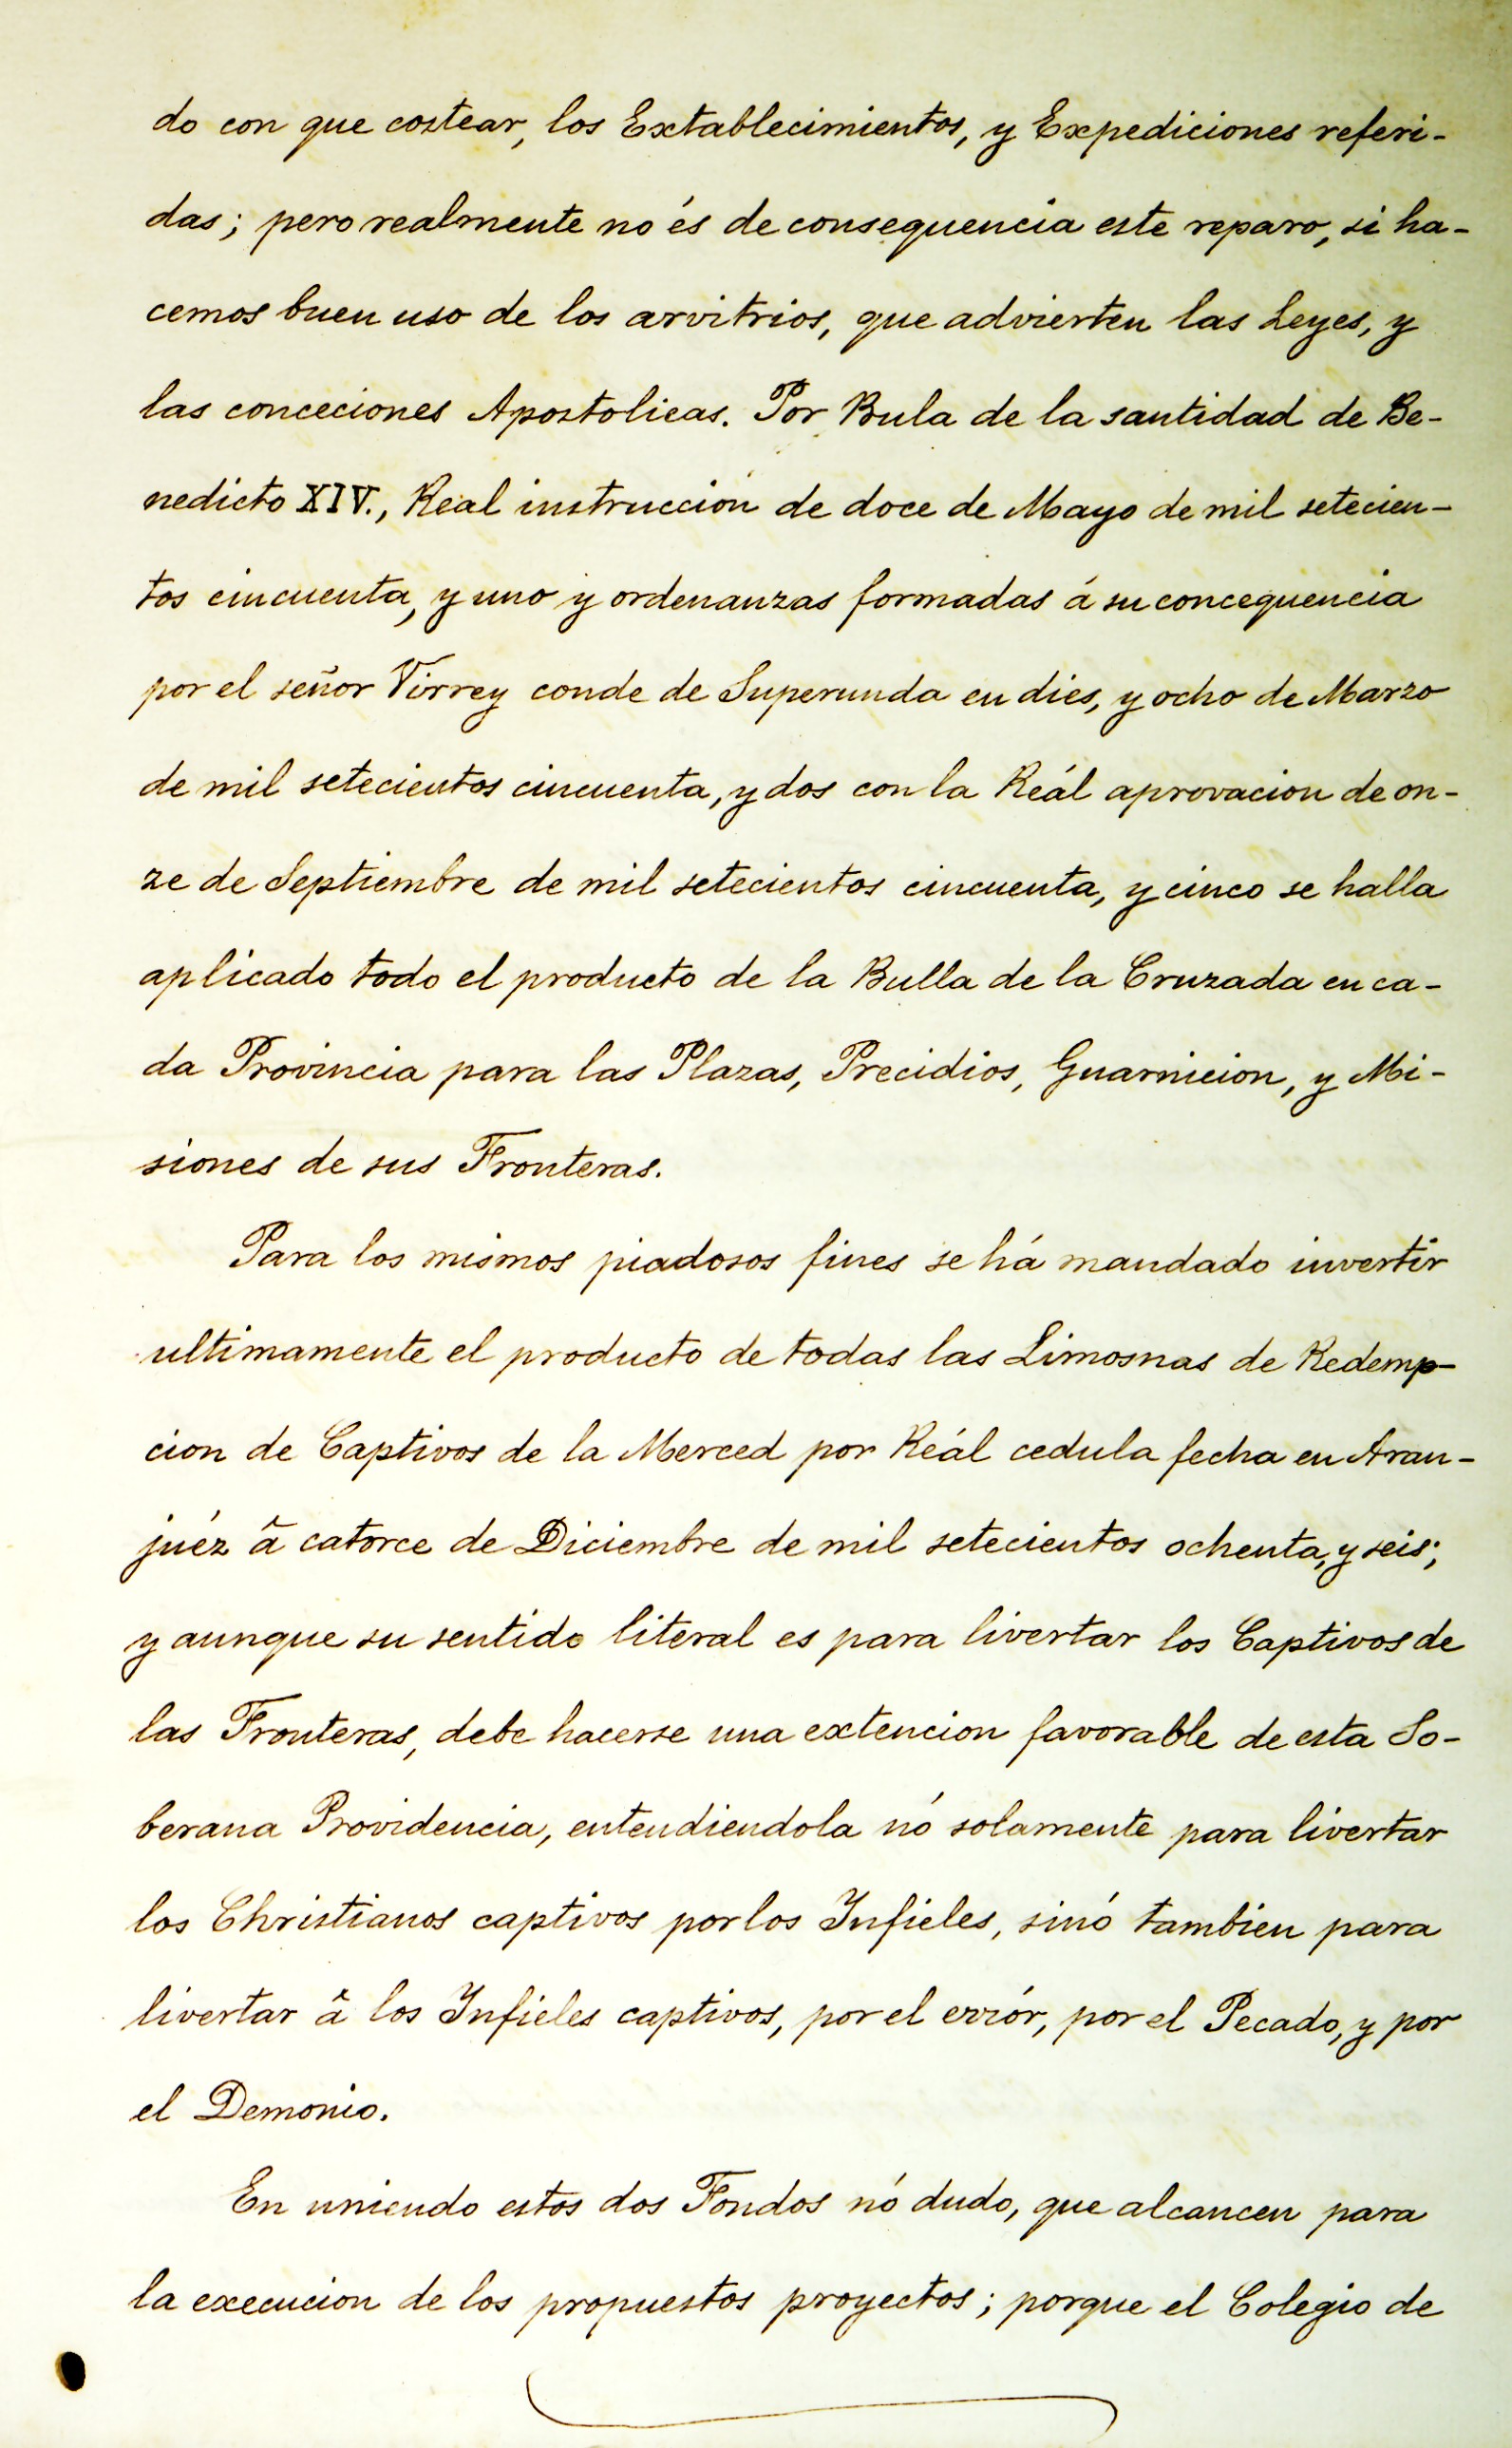 do con que costear, los Extablecimientos, y Expediciones referi-
das; pero realmente no és de consequencia este reparo, si ha-
cemos buen uso de los arvitrios, que advierten las Leyes, y
las conceciones Apostolicas. Por Bula de la santidad de Be-
nedicto XIV., Real instruccion de doce de Mayo de mil setecien-
tos cincuenta, y uno y ordenanzas formadas á su concequencia
por el señor Virrey conde de Superunda en dies, y ocho de Marzo
de mil setecientos cincuenta, y dos con la Reál aprovacion de on-
ze de Septiembre de mil setecientos cincuenta, y cinco se halla
aplicado todo el producto de la Bulla de la Cruzada en ca-
da Provincia para las Plazas, Precidios, Guarnicion, y Mi-
siones de sus Fronteras.
Para los mismos piadosos fines se há mandado invertir
ultimamente el producto de todas las Limosnas de Redemp-
cion de Captivos de la Merced por Reál cedula fecha en Aran-
juéz â catorce de Diciembre de mil setecientos ochenta, y seis;
y aunque su sentido literal es para livertar los Captivos de
las Fronteras, debe hacerse una extencion favorable de esta So-
berana Providencia, entendiendola nó solamente para livertar
los Christianos captivos por los Infieles, sinó tambien para
livertar â los Infieles captivos, por el errór, por el Pecado, y por
el Demonio.
En uniendo estos dos Fondos nó dudo, que alcancen para
la execucion de los propuestos proyectos; porque el Colegio de